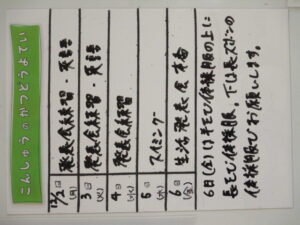 こんしゅうのかつどうよてい
12/2日(月) 発表会練習・英語
3日(火) 発表会練習・英語
4日(水) 発表会練習
5日(木) スイミング
6日(金) 生活発表会本番
6日(金)は半そで体操服の上に
長そで体操服。下は長ズボンの
体操服でお願いします。